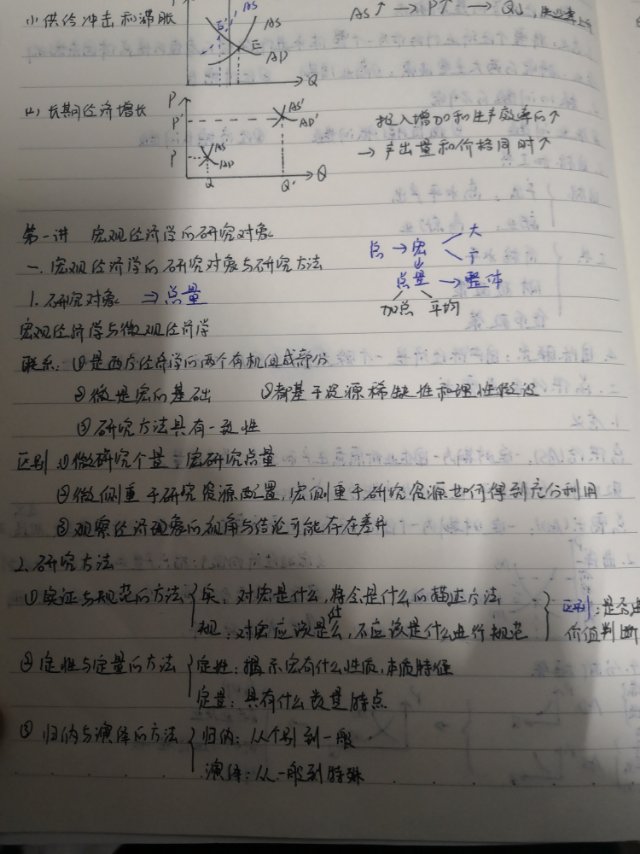 (3) 供给冲击和滞胀
AS' AS
E' E
AD
Q
AS↑ → P↑ → Q↓
(4) 长期经济增长
P
P'
P
AS'
AD'
AS
AD
Q Q' Q
投入增加和生产效率的↑
→ 产出量和价格同时↑
第一讲 宏观经济学的研究对象
一、宏观经济学的研究对象与研究方法
1. 研究对象 ⇒ 总量
总 → 宏 大
总量 → 整体
加总 平均
宏观经济学与微观经济学
联系: ①是西方经济学的两个有机组成部分
②微是宏的基础 ③都基于资源稀缺性和理性假设
③研究方法具有一致性
区别 ①微研究个量 宏研究总量
②微侧重于研究资源配置,宏侧重于研究资源如何得到充分利用
③观察经济现象的视角与结论可能存在差异
2. 研究方法
①实证与规范的方法 实: 对宏是什么, 将会是什么的描述方法
规: 对宏应该是什么, 不应该是什么进行规范
区别: 是否
价值判断
②定性与定量的方法 定性: 揭示宏有什么性质,本质特征
定量: 具有什么数量特点
③归纳与演绎的方法 归纳: 从个别到一般
演绎: 从一般到特殊